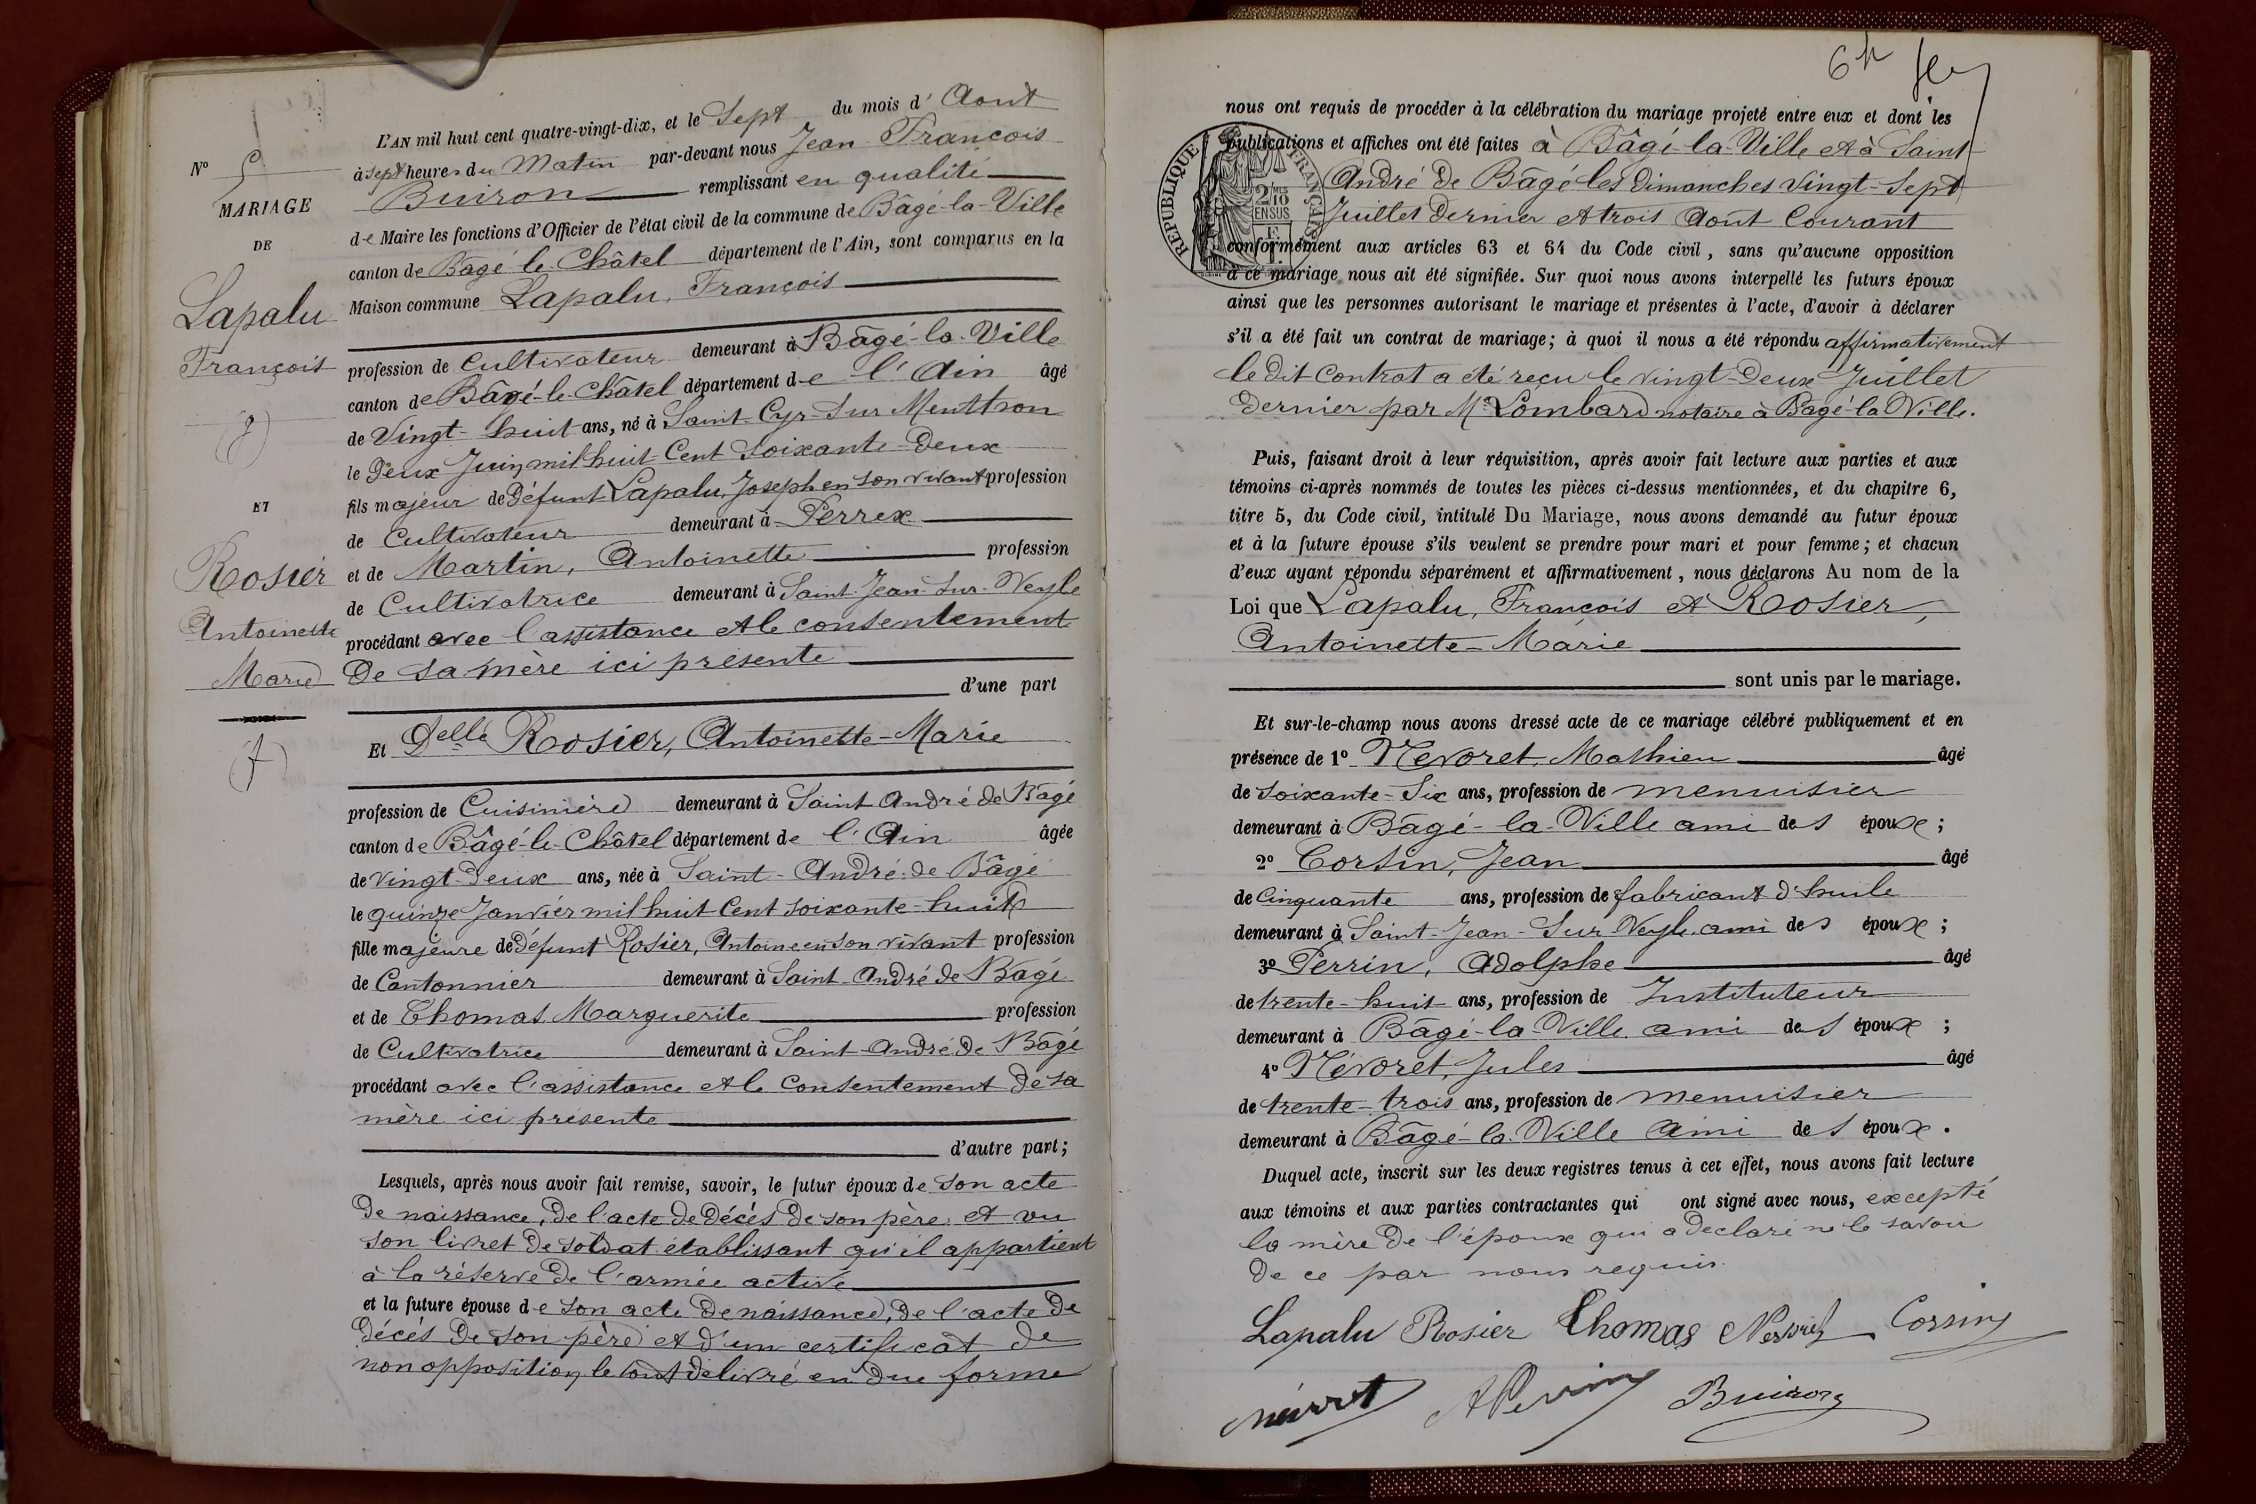 L'AN mil huit cent quatre-vingt-dix, et le Sept du mois d' Aout
à sept heures du Matin par-devant nous Jean François
Buiron remplissant en qualité
de Maire les fonctions d'Officier de l'état civil de la commune de Bâgé-la-Ville
canton de Bâgé-le-Châtel département de l'Ain, sont comparus en la
Maison commune Lapalu, François
profession de Cultivateur demeurant à Bâgé-la-Ville
canton de Bâgé-le-Châtel département de l'Ain âgé
de Vingt-huit ans, né à Saint-Cyr-Sur Mentton
le Deux Juin mil huit Cent Soixante-Deux
fils majeur de Défunt Lapalu, Joseph en son vivant profession
de Cultivateur demeurant à Perrex
et de Martin, Antoinette profession
de Cultivatrice demeurant à Saint-Jean-Sur-Veyle
procédant avec l'assistance et le consentement
De sa mère ici présente
d'une part
Et Delle Rosier, Antoinette-Marie
profession de Cuisinière demeurant à Saint André de Bâgé
canton de Bâgé-le-Châtel département de l'Ain âgée
de vingt-Deux ans, née à Saint-André-de Bâgé
le quinze Janvier mil huit Cent soixante-huit
fille majeure de défunt Rosier, Antoine en son vivant profession
de Cantonnier demeurant à Saint-André de Bâgé
et de Thomas Marguerite profession
de Cultivatrice demeurant à Saint-André de Bâgé
procédant avec l'assistance et le Consentement de sa
mère ici présente
d'autre part;
Lesquels, après nous avoir fait remise, savoir, le futur époux de son acte
de naissance, de l'acte de Décès de son père et vu
son livret de soldat établissant qu'il appartient
à la réserve de l'armée active
et la future épouse de son acte de naissance, de l'acte de
décès de son père et d'un certificat de
non opposition le tout délivré en due forme
Nº 5
MARIAGE
DE
Lapalu
François
ET
Rosier
Antoinette
Marie
nous ont requis de procéder à la célébration du mariage projeté entre eux et dont les
publications et affiches ont été faites à Bâgé-la-Ville et à Saint
André de Bâgé les Dimanches vingt-Sept
Juillet Dernier et trois Aout Courant
conformément aux articles 63 et 64 du Code civil, sans qu'aucune opposition
à ce mariage nous ait été signifiée. Sur quoi nous avons interpellé les futurs époux
ainsi que les personnes autorisant le mariage et présentes à l'acte, d'avoir à déclarer
s'il a été fait un contrat de mariage; à quoi il nous a été répondu affirmativement
le dit Contrat a été reçu le vingt-Deux Juillet
Dernier par Me Lombard notaire à Bagé-la Ville.
Puis, faisant droit à leur réquisition, après avoir fait lecture aux parties et aux
témoins ci-après nommés de toutes les pièces ci-dessus mentionnées, et du chapitre 6,
titre 5, du Code civil, intitulé Du Mariage, nous avons demandé au futur époux
et à la future épouse s'ils veulent se prendre pour mari et pour femme; et chacun
d'eux ayant répondu séparément et affirmativement, nous déclarons Au nom de la
Loi que Lapalu, François et Rosier,
Antoinette-Marie
sont unis par le mariage.
Et sur-le-champ nous avons dressé acte de ce mariage célébré publiquement et en
présence de 1º Nevoret, Mathieu âgé
de soixante-Six ans, profession de menuisier
demeurant à Bâgé-la-Ville ami des époux;
2º Corsin, Jean âgé
de Cinquante ans, profession de fabricant d'huile
demeurant à Saint-Jean-Sur Veyle ami des époux;
3º Perrin, Adolphe âgé
de trente-huit ans, profession de Instituteur
demeurant à Bâgé-la-Ville ami des époux;
4º Névoret, Jules âgé
de trente-trois ans, profession de menuisier
demeurant à Bâgé-la-Ville Ami des époux.
Duquel acte, inscrit sur les deux registres tenus à cet effet, nous avons fait lecture
aux témoins et aux parties contractantes qui ont signé avec nous, excepté
la mère de l'époux qui a déclaré ne le savoir
de ce par nous requis
Lapalu Rosier Thomas Nevoret Corsin
névoret APerrin Buiron
RÉPUBLIQUE FRANÇAISE
2 MES 10
EN SUS